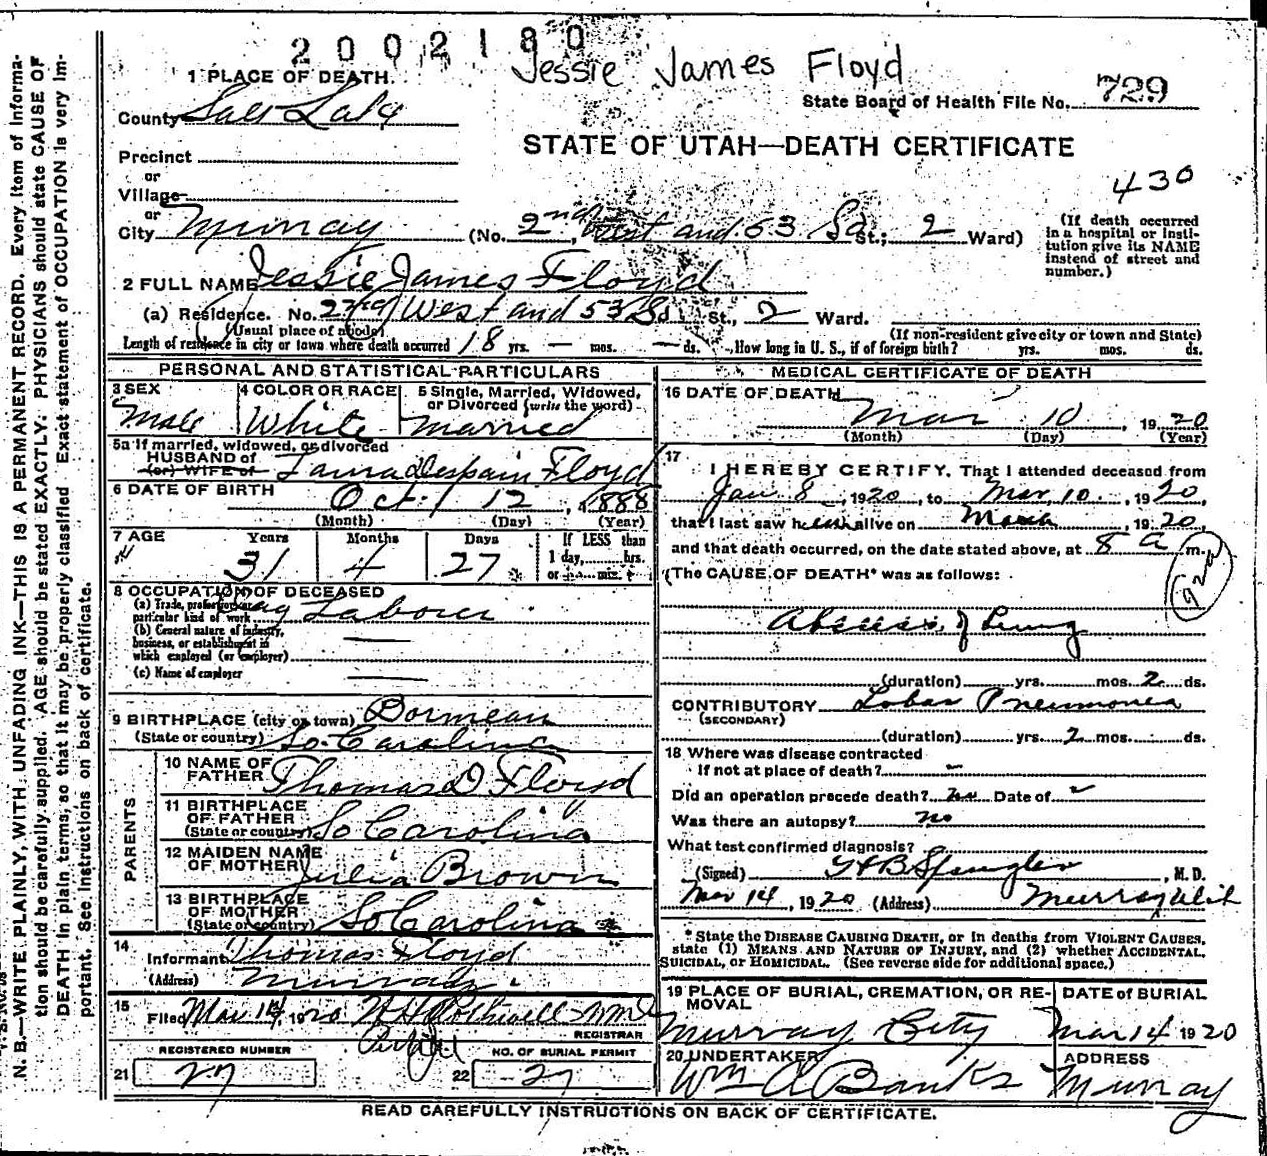 2002180
Jessie James Floyd
1 PLACE OF DEATH
State Board of Health File No. 729
County Salt Lake
STATE OF UTAH—DEATH CERTIFICATE
Precinct
or
430
Village
or
City Murray (No. 2nd West and 53 So St.; 2 Ward)
(If death occurred in a hospital or institution give its NAME instead of street and number.)
2 FULL NAME Jessie James Floyd
(a) Residence. No. 2nd West and 53 So. St., 2 Ward.
(Usual place of abode) (If non-resident give city or town and State)
Length of residence in city or town where death occurred 18 yrs. — mos. — ds. How long in U. S., if of foreign birth? yrs. mos. ds.
PERSONAL AND STATISTICAL PARTICULARS
3 SEX 4 COLOR OR RACE 5 Single, Married, Widowed, or Divorced (write the word)
Male White Married
5a If married, widowed, or divorced
HUSBAND of
(or) WIFE of Despain Floyd
6 DATE OF BIRTH Oct. 12, 1888
(Month) (Day) (Year)
7 AGE Years Months Days If LESS than
31 4 27 1 day, hrs.
or min.
8 OCCUPATION OF DECEASED
(a) Trade, profession, or
particular kind of work Day Laborer
(b) General nature of industry,
business, or establishment in
which employed (or employer)
(c) Name of employer
9 BIRTHPLACE (city or town)
(State or country) So. Carolina
PARENTS
10 NAME OF FATHER Thomas D Floyd
11 BIRTHPLACE OF FATHER
(State or country) So Carolina
12 MAIDEN NAME OF MOTHER Julia Brown
13 BIRTHPLACE OF MOTHER
(State or country) So Carolina
14
Informant Thomas Floyd
(Address) Murray
15
Filed Mar 14, 1920
REGISTRAR
REGISTERED NUMBER NO. OF BURIAL PERMIT
21 27 22 27
MEDICAL CERTIFICATE OF DEATH
16 DATE OF DEATH
Mar 10, 1920
(Month) (Day) (Year)
17
I HEREBY CERTIFY, That I attended deceased from
Jan 8, 1920, to Mar 10., 1920,
that I last saw h alive on March, 1920,
and that death occurred, on the date stated above, at 8 a m.
The CAUSE OF DEATH* was as follows:
92a
Abscess of Lung
(duration) yrs. mos. 2 ds.
CONTRIBUTORY Lobar Pneumonia
(SECONDARY)
(duration) yrs. 2 mos. ds.
18 Where was disease contracted
If not at place of death?
Did an operation precede death? no Date of
Was there an autopsy? no
What test confirmed diagnosis?
(Signed) Spangler, M. D.
Mar 14, 1920 (Address) Murray Utah
*State the DISEASE CAUSING DEATH, or in deaths from VIOLENT CAUSES,
state (1) MEANS AND NATURE OF INJURY, and (2) whether ACCIDENTAL,
SUICIDAL, or HOMICIDAL. (See reverse side for additional space.)
19 PLACE OF BURIAL, CREMATION, OR REMOVAL DATE of BURIAL
Murray City Mar 14 1920
20 UNDERTAKER ADDRESS
Wm A Banks Murray
READ CAREFULLY INSTRUCTIONS ON BACK OF CERTIFICATE.
N. B.—WRITE PLAINLY, WITH UNFADING INK—THIS IS A PERMANENT RECORD. Every item of informa-
tion should be carefully supplied. AGE should be stated EXACTLY. PHYSICIANS should state CAUSE OF
DEATH in plain terms, so that it may be properly classified. Exact statement of OCCUPATION is very im-
portant. See instructions on back of certificate.